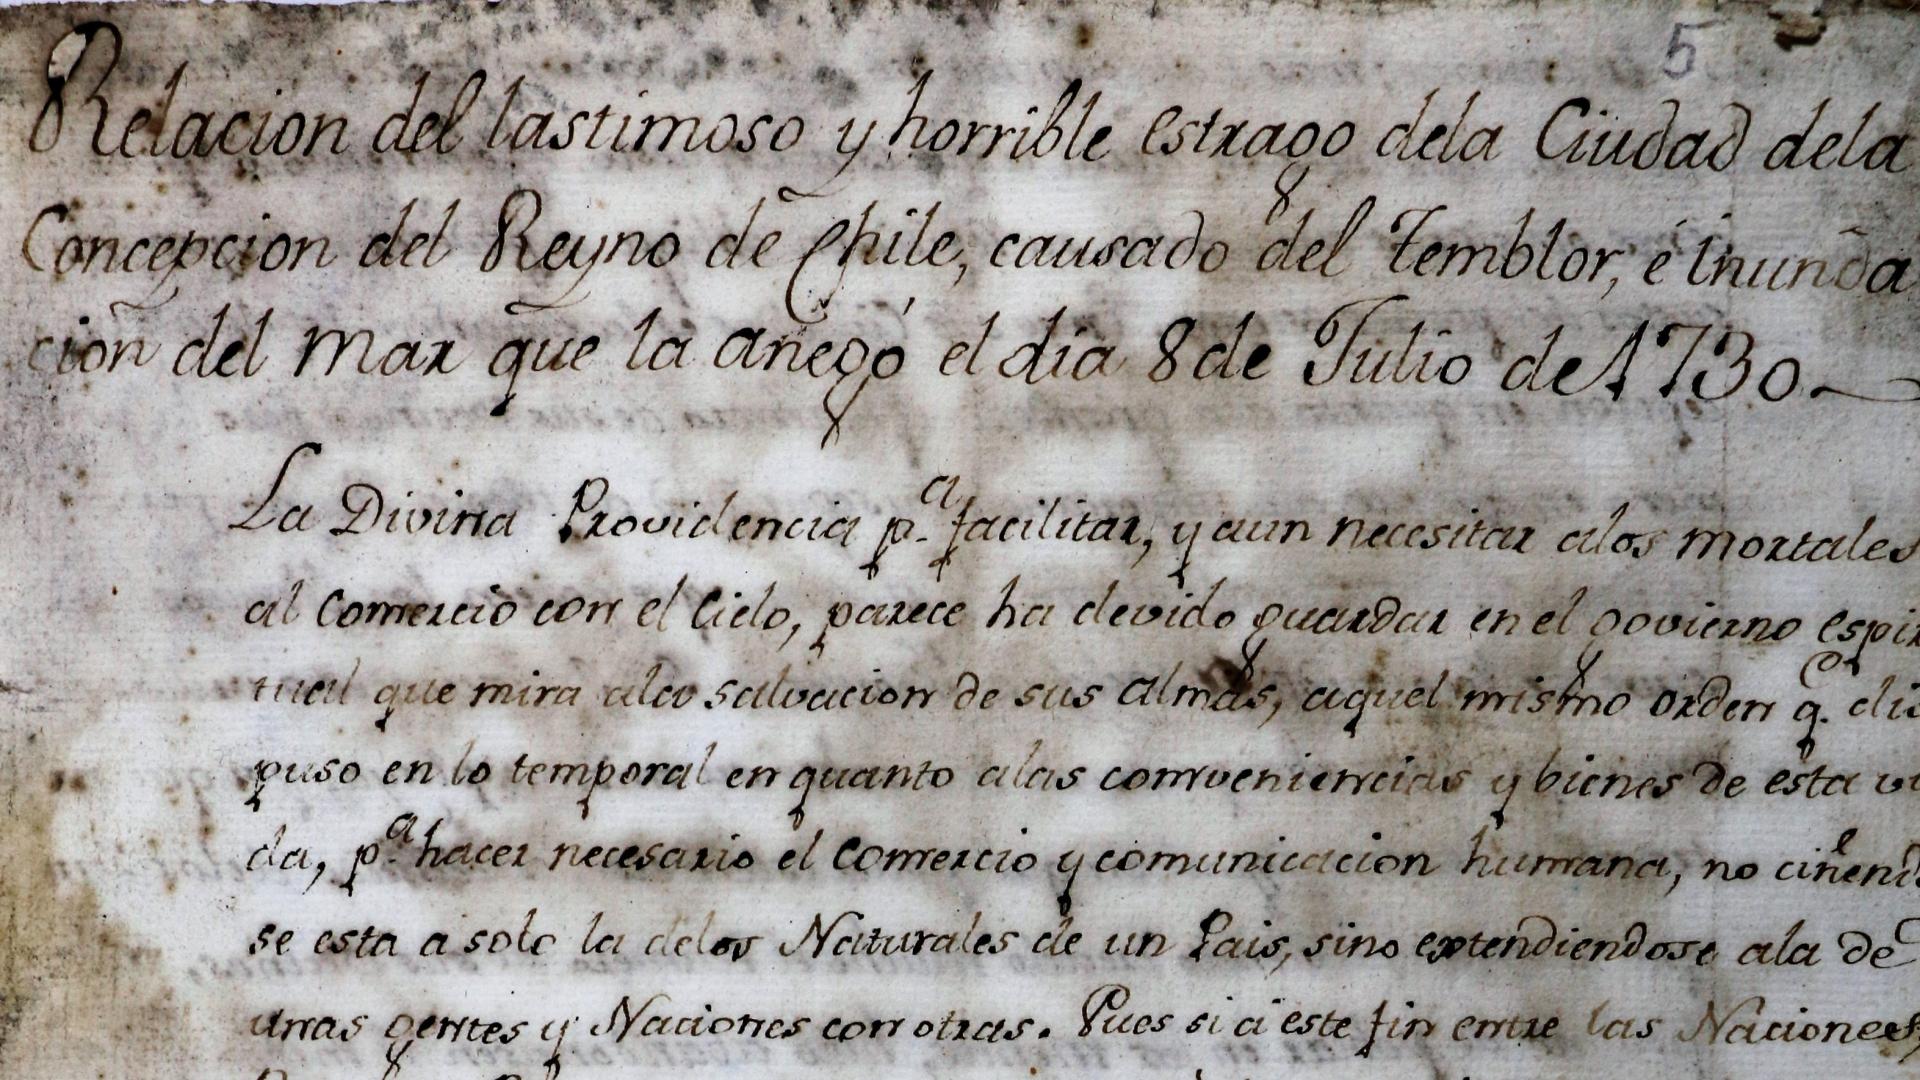 5
Relacion del lastimoso y horrible estrago dela Ciudad dela
Concepcion del Reyno de Chile, causado del Temblor, é inunda
cion del mar que la anegó el dia 8 de Julio de 1730.
La Divina Providencia p.a facilitar, y aun necesitar alos mortales
al Comercio con el Cielo, parece ha devido guardar en el govierno espiri
tual que mira ala salvacion de sus Almas, aquel mismo orden q.e dis
puso en lo temporal en quanto alas conveniencias y bienes de esta vi
da, p.a hacer necesario el Comercio y comunicacion humana, no ciñend
se esta a solo la delos Naturales de un Pais, sino extendiendose ala de
unas gentes y Naciones con otras. Pues si á este fin entre las Naciones,